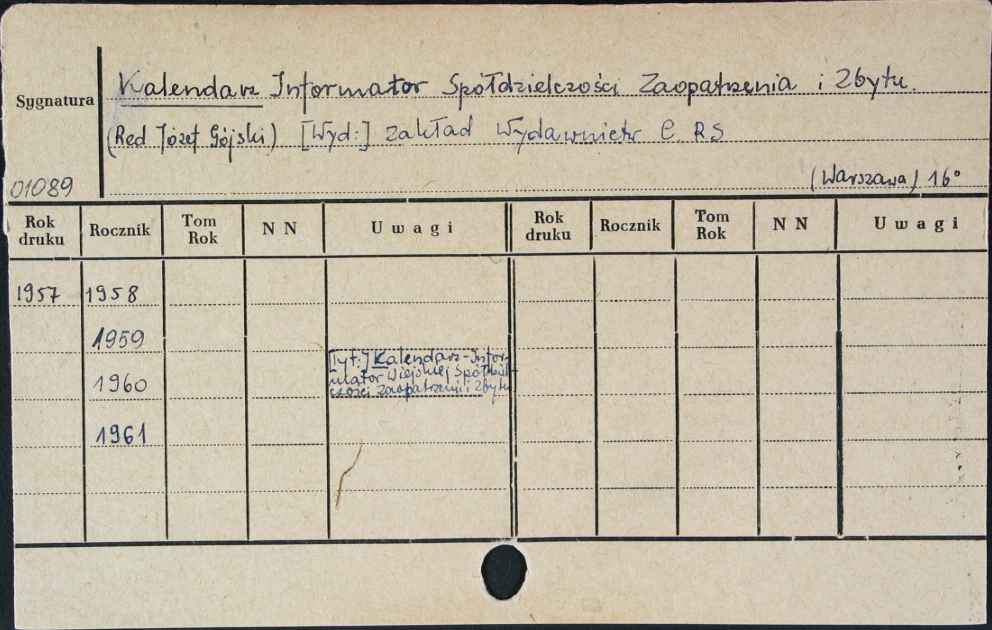 Kalendarz Informator Spółdzielczości Zaopatrzenia i Zbytu.
Sygnatura
(Red Józef Gójski) [Wyd:] Zakład Wydawnictw C. RS
01089
(Warszawa) 16°
Rok druku Rocznik Tom Rok N N Uwagi Rok druku Rocznik Tom Rok N N Uwagi
1957 1958
1959
[Tyt:] Kalendarz-Infor-
1960 mator Wiejskiej Spółdziel-
czości Zaopatrzenia i Zbytu
1961